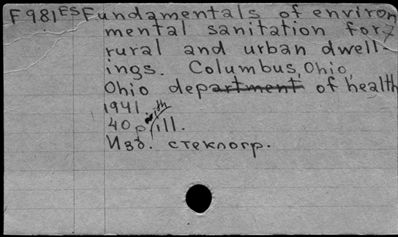 F981ES Fundamentals of environ
mental sanitation for
rural and urban dwell-
ings. Columbus, Ohio,
Ohio department of health
1941.
40 p. with ill.
Изд. стеклогр.